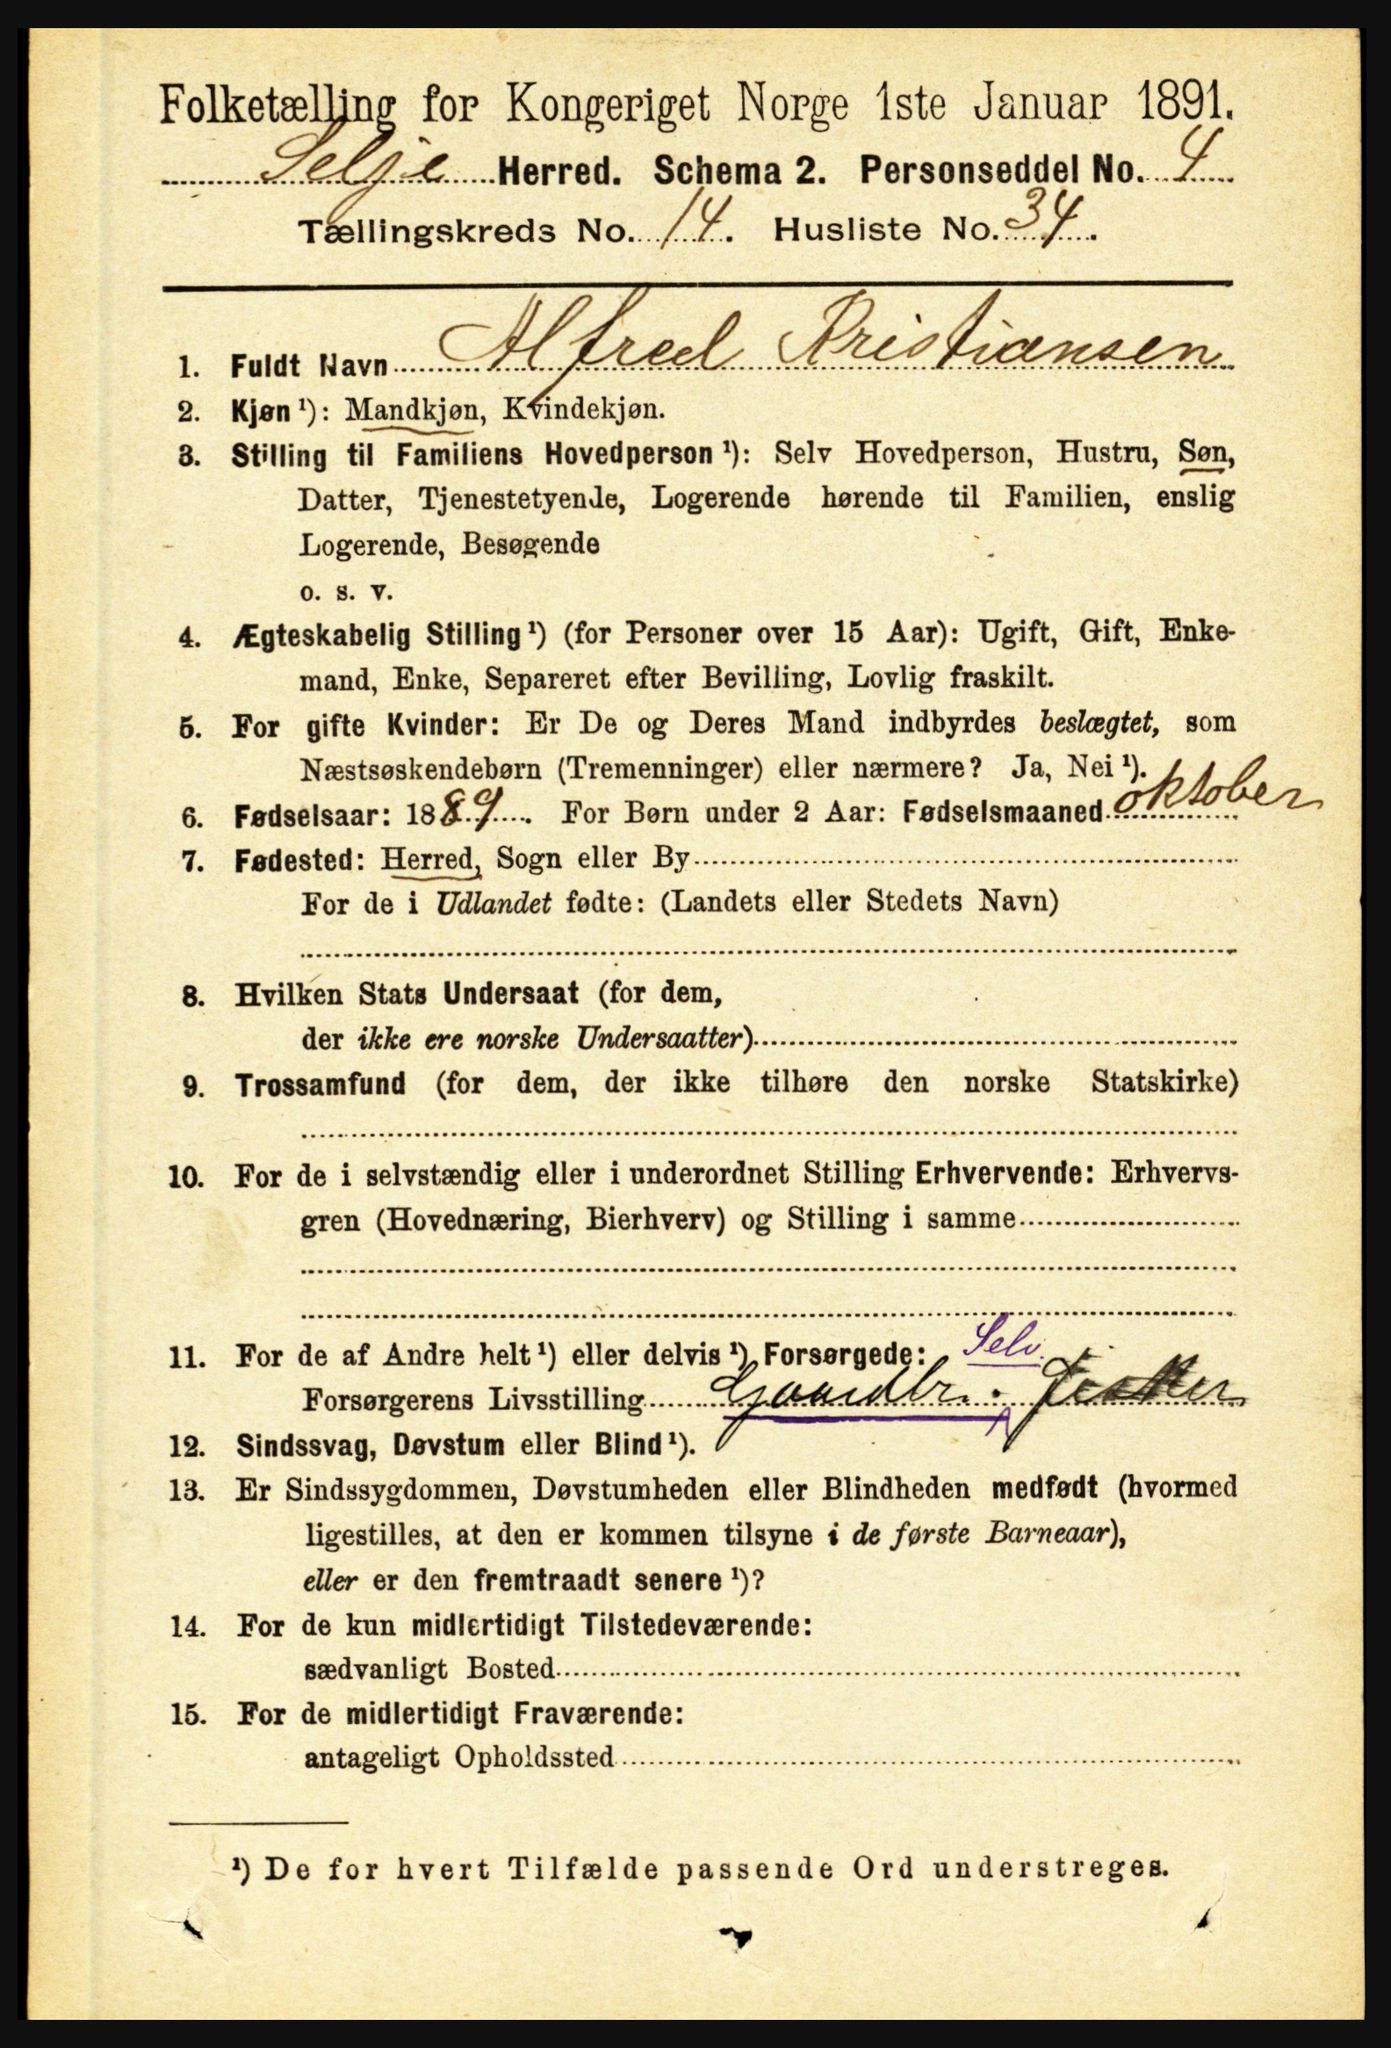 Folketælling for Kongeriget Norge 1ste Januar 1891.
Selje Herred. Schema 2. Personseddel No. 4
Tællingskreds No. 14. Husliste No. 34.
1. Fuldt Navn Alfred Kristiansen
2. Kjøn ¹): Mandkjøn, Kvindekjøn.
3. Stilling til Familiens Hovedperson ¹): Selv Hovedperson, Hustru, Søn,
Datter, Tjenestetyende, Logerende hørende til Familien, enslig
Logerende, Besøgende
o. s. v.
4. Ægteskabelig Stilling ¹) (for Personer over 15 Aar): Ugift, Gift, Enke-
mand, Enke, Separeret efter Bevilling, Lovlig fraskilt.
5. For gifte Kvinder: Er De og Deres Mand indbyrdes beslægtet, som
Næstsøskendebørn (Tremenninger) eller nærmere? Ja, Nei ¹).
6. Fødselsaar: 1889. For Børn under 2 Aar: Fødselsmaaned oktober
7. Fødested: Herred, Sogn eller By
For de i Udlandet fødte: (Landets eller Stedets Navn)
8. Hvilken Stats Undersaat (for dem,
der ikke ere norske Undersaatter)
9. Trossamfund (for dem, der ikke tilhøre den norske Statskirke)
10. For de i selvstændig eller i underordnet Stilling Erhvervende: Erhvervs-
gren (Hovednæring, Bierhverv) og Stilling i samme
11. For de af Andre helt ¹) eller delvis ¹) Forsørgede: Selv.
Forsørgerens Livsstilling Gaardbr. Fisker
12. Sindssvag, Døvstum eller Blind ¹).
13. Er Sindssygdommen, Døvstumheden eller Blindheden medfødt (hvormed
ligestilles, at den er kommen tilsyne i de første Barneaar),
eller er den fremtraadt senere ¹)?
14. For de kun midlertidigt Tilstedeværende:
sædvanligt Bosted
15. For de midlertidigt Fraværende:
antageligt Opholdssted
¹) De for hvert Tilfælde passende Ord understreges.